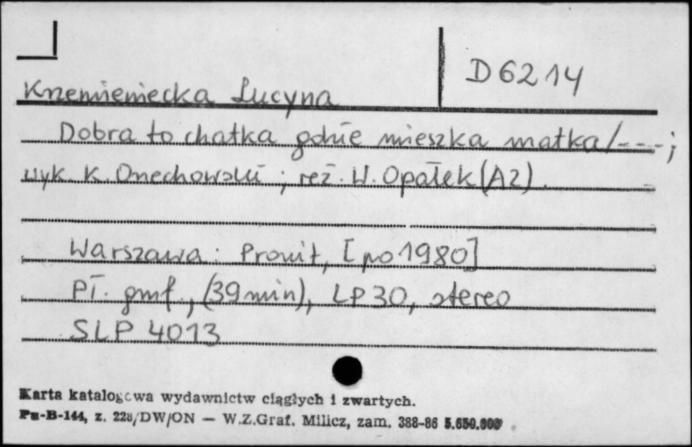 D 6214
Krzemieniecka Lucyna
Dobra to chatka gdzie mieszka matka / - - - ;
wyk. K. Orzechowski ; reż. W. Opałek (A2).
Warszawa : Pronit, [po 1980]
Pł. gmf., (39 min), LP 30, stereo
SLP 4013
Karta katalogowa wydawnictw ciągłych i zwartych.
Pu-B-144, z. 228/DW/ON — W.Z.Graf. Milicz, zam. 388-86 5.650.000